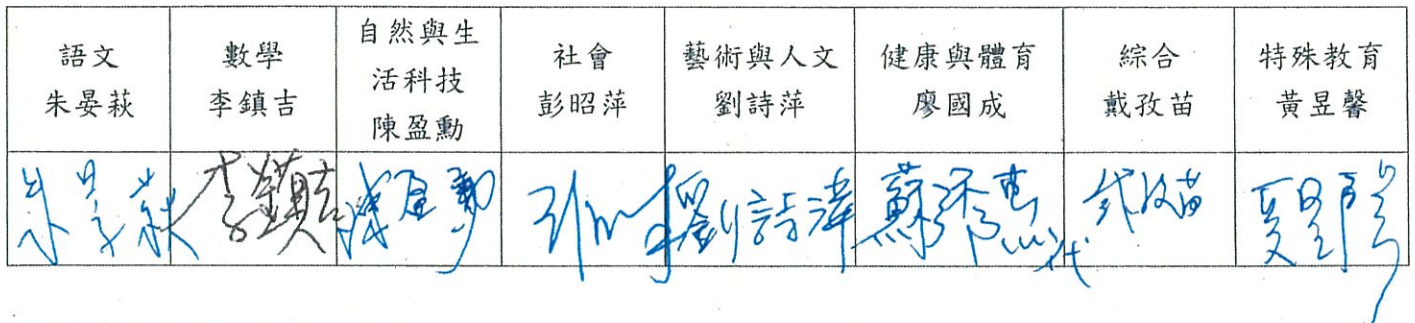 語文
朱晏萩
數學
李鎮吉
自然與生
活科技
陳盈勳
社會
彭昭萍
藝術與人文
劉詩萍
健康與體育
廖國成
綜合
戴孜苗
特殊教育
黃昱馨
朱晏萩
李鎮吉
陳盈勳
劉詩萍
代